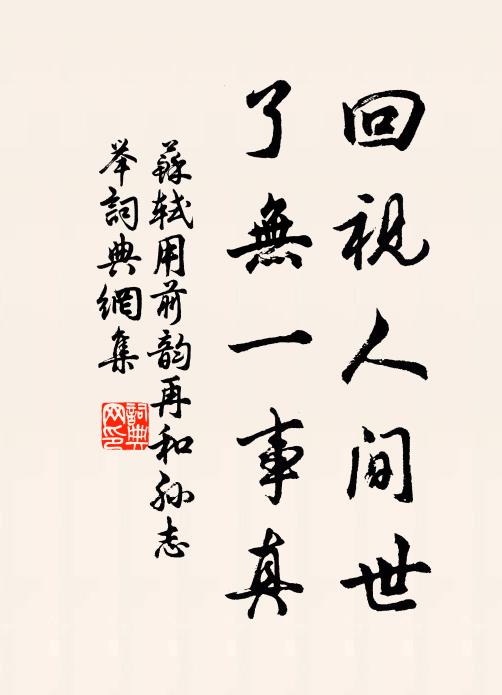 回視人间世
了無一事真
蘇軾用前韵再和孙志
举詞典網集
詞典
网印